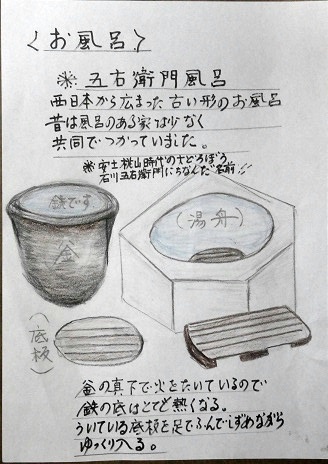 〈お風呂〉
※五右衛門風呂
西日本から広まった古い形のお風呂
昔は風呂のある家は少なく
共同でつかっていました。
※安土桃山時代の大どろぼう
石川五右衛門にちなんだ名前!!
鉄です
釜
(湯舟)
(底板)
釜の真下で火をたいているので
鉄の底はとても熱くなる。
ういている底板を足でふんでしずめながら
ゆっくり入る。